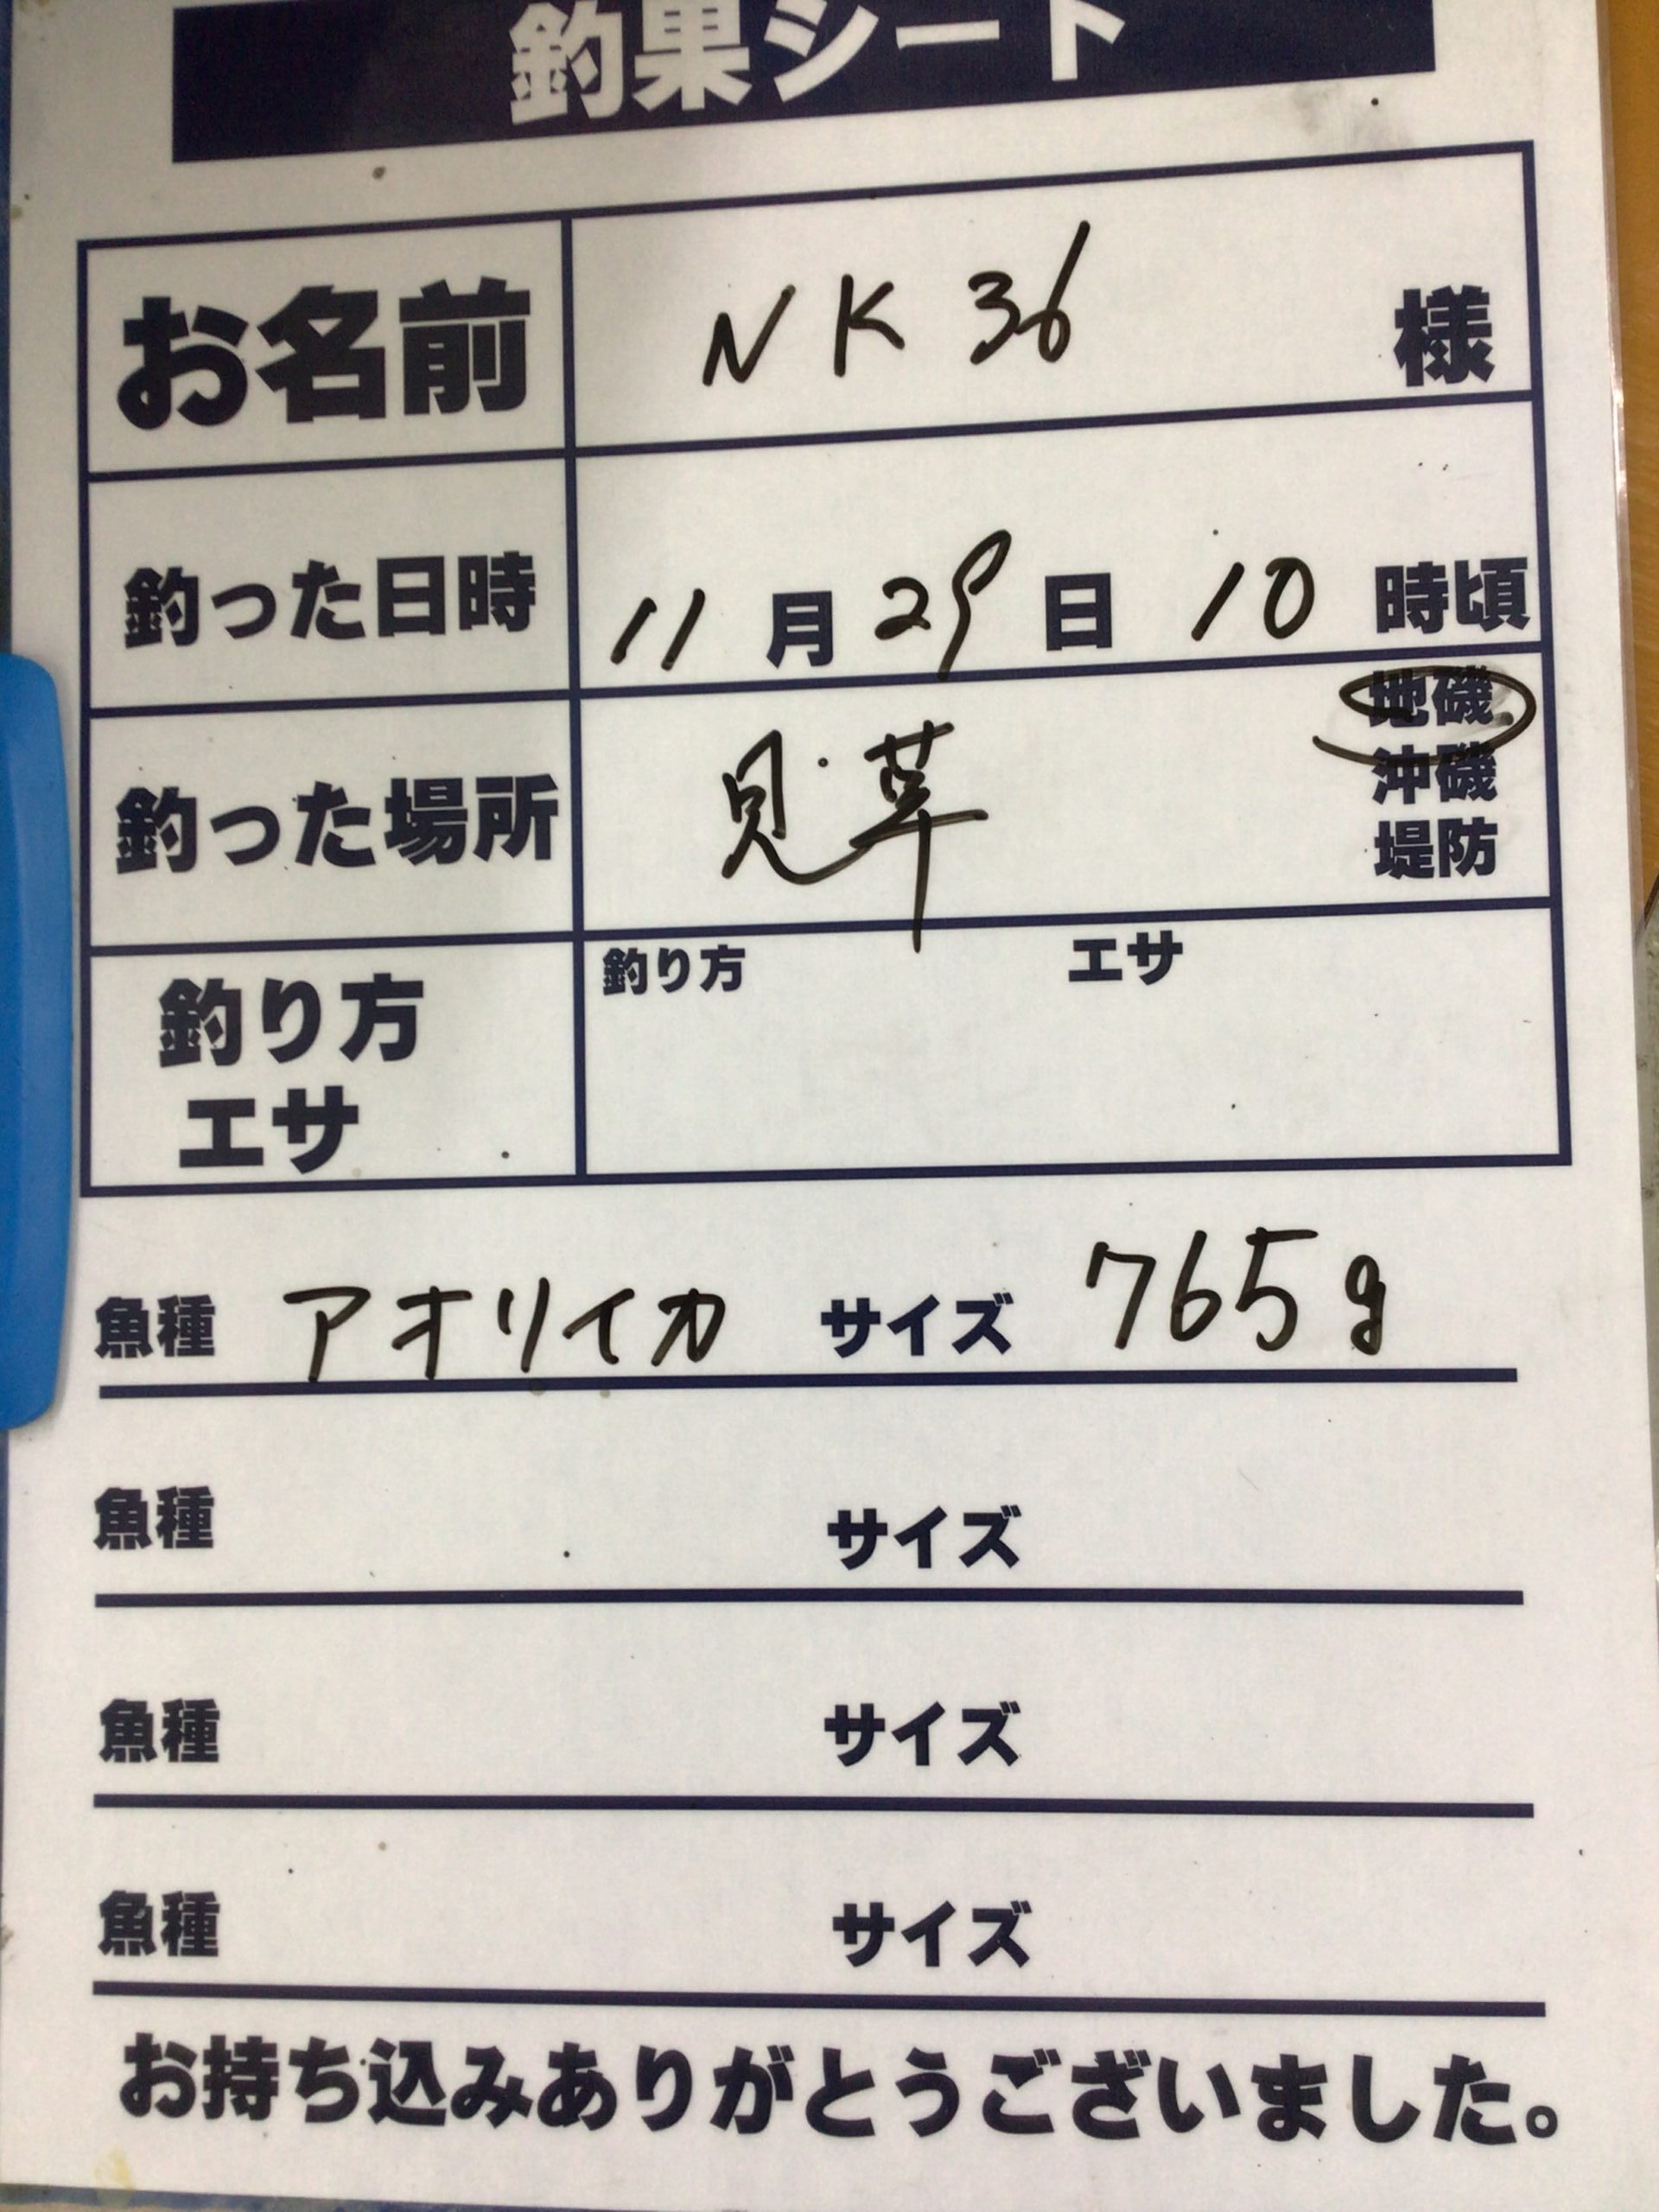 釣果シート
お名前 NK36 様
釣った日時 11月29日 10時頃
釣った場所 見草 地磯
沖磯
堤防
釣り方 エサ
釣り方
エサ
魚種 アオリイカ サイズ 765g
魚種 サイズ
魚種 サイズ
魚種 サイズ
お持ち込みありがとうございました。